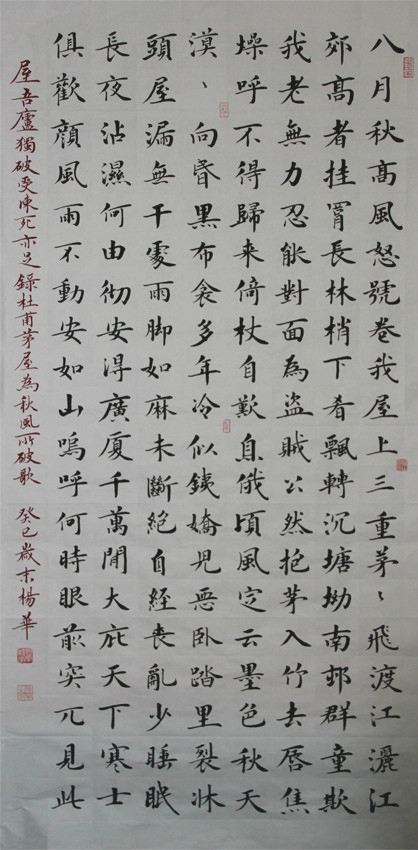 八月秋高風怒號卷我屋上三重茅〻飛渡江灑江
郊高者挂罥長林梢下者飄轉沉塘坳南邨群童欺
我老無力忍能對面為盜賊公然抱茅入竹去唇焦
燥呼不得歸来倚杖自歎息俄頃風定云墨色秋天
漠〻向昏黑布衾多年冷似銕嬌兒惡卧踏里裂牀
頭屋漏無干處雨脚如麻未斷絕自經喪亂少睡眠
長夜沾濕何由彻安得廣厦千萬間大庇天下寒士
俱歡顏風雨不動安如山嗚呼何時眼前突兀見此
屋吾廬獨破受凍死亦足錄杜甫茅屋為秋風所破歌 癸巳歲末楊華